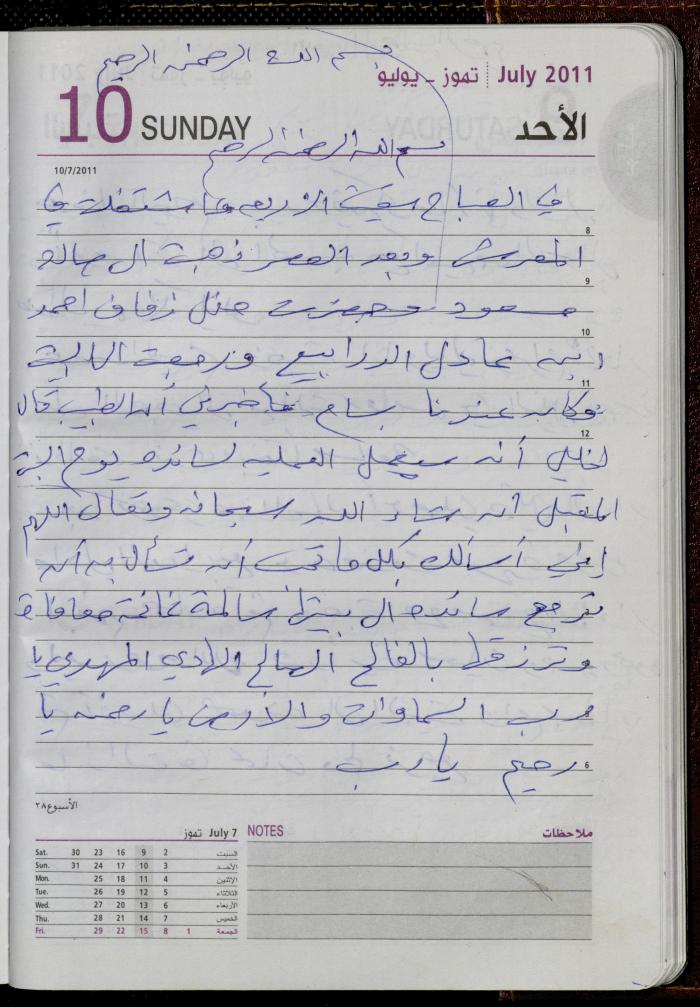 بسم الله الرحمن الرحيم
July 2011 تموز - يوليو
10 SUNDAY الأحد
بسم الله الرحمن الرحيم
10/7/2011
في الصباح سقيت الأربعة واشتغلت في
8
المعرش وبعد العصر ذهبت الى صالة
9
مسعود وحضرت حفل زفاف احمد
10
ابنه عادل الدرابيع ورجعت الى البيت
11
وكان عندنا بسام فاخبرني أن الطبيب قال
12
لخليل أنه سيعمل العملية لسائده يوم
المقبل أن شاء الله سبحانه وتعالى اللهم
إني أسألك بكل ما تحب أن تسأل به أن
ترجع سائده الى بيتها سالمة غانمة معافاة
وترزقها بالغالم الصالح الهادي المهدي يا
رب السماوات والأرض يا رحمن يا
6
رحيم يا رب
الأسبوع ٢٨
July 7 تموز
Sat. 30 23 16 9 2 السبت
Sun. 31 24 17 10 3 الأحد
Mon. 25 18 11 4 الإثنين
Tue. 26 19 12 5 الثلاثاء
Wed. 27 20 13 6 الأربعاء
Thu. 28 21 14 7 الخميس
Fri. 29 22 15 8 1 الجمعة
NOTES ملاحظات